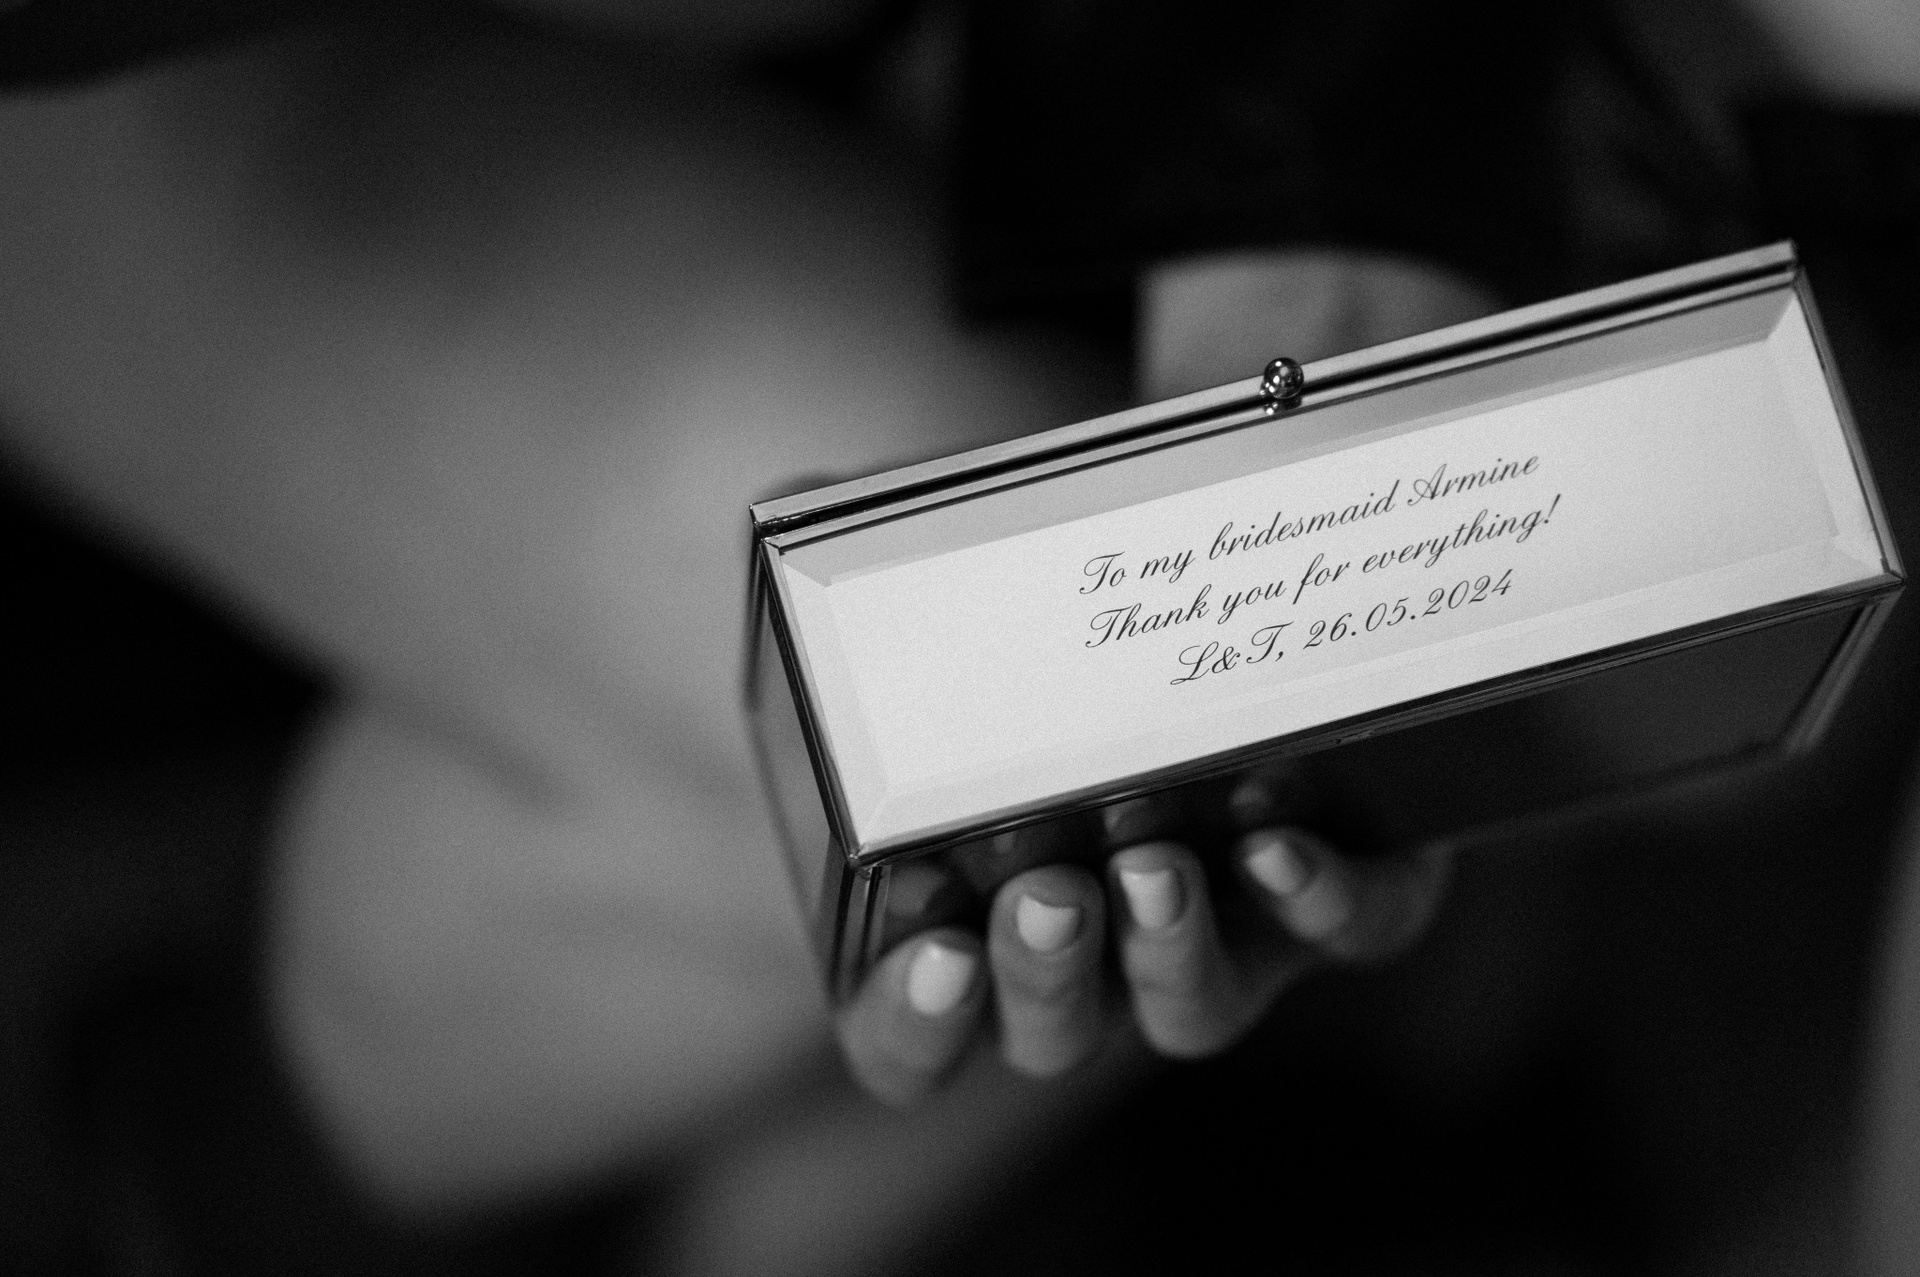 To my bridesmaid Armine
Thank you for everything!
L&T, 26.05.2024